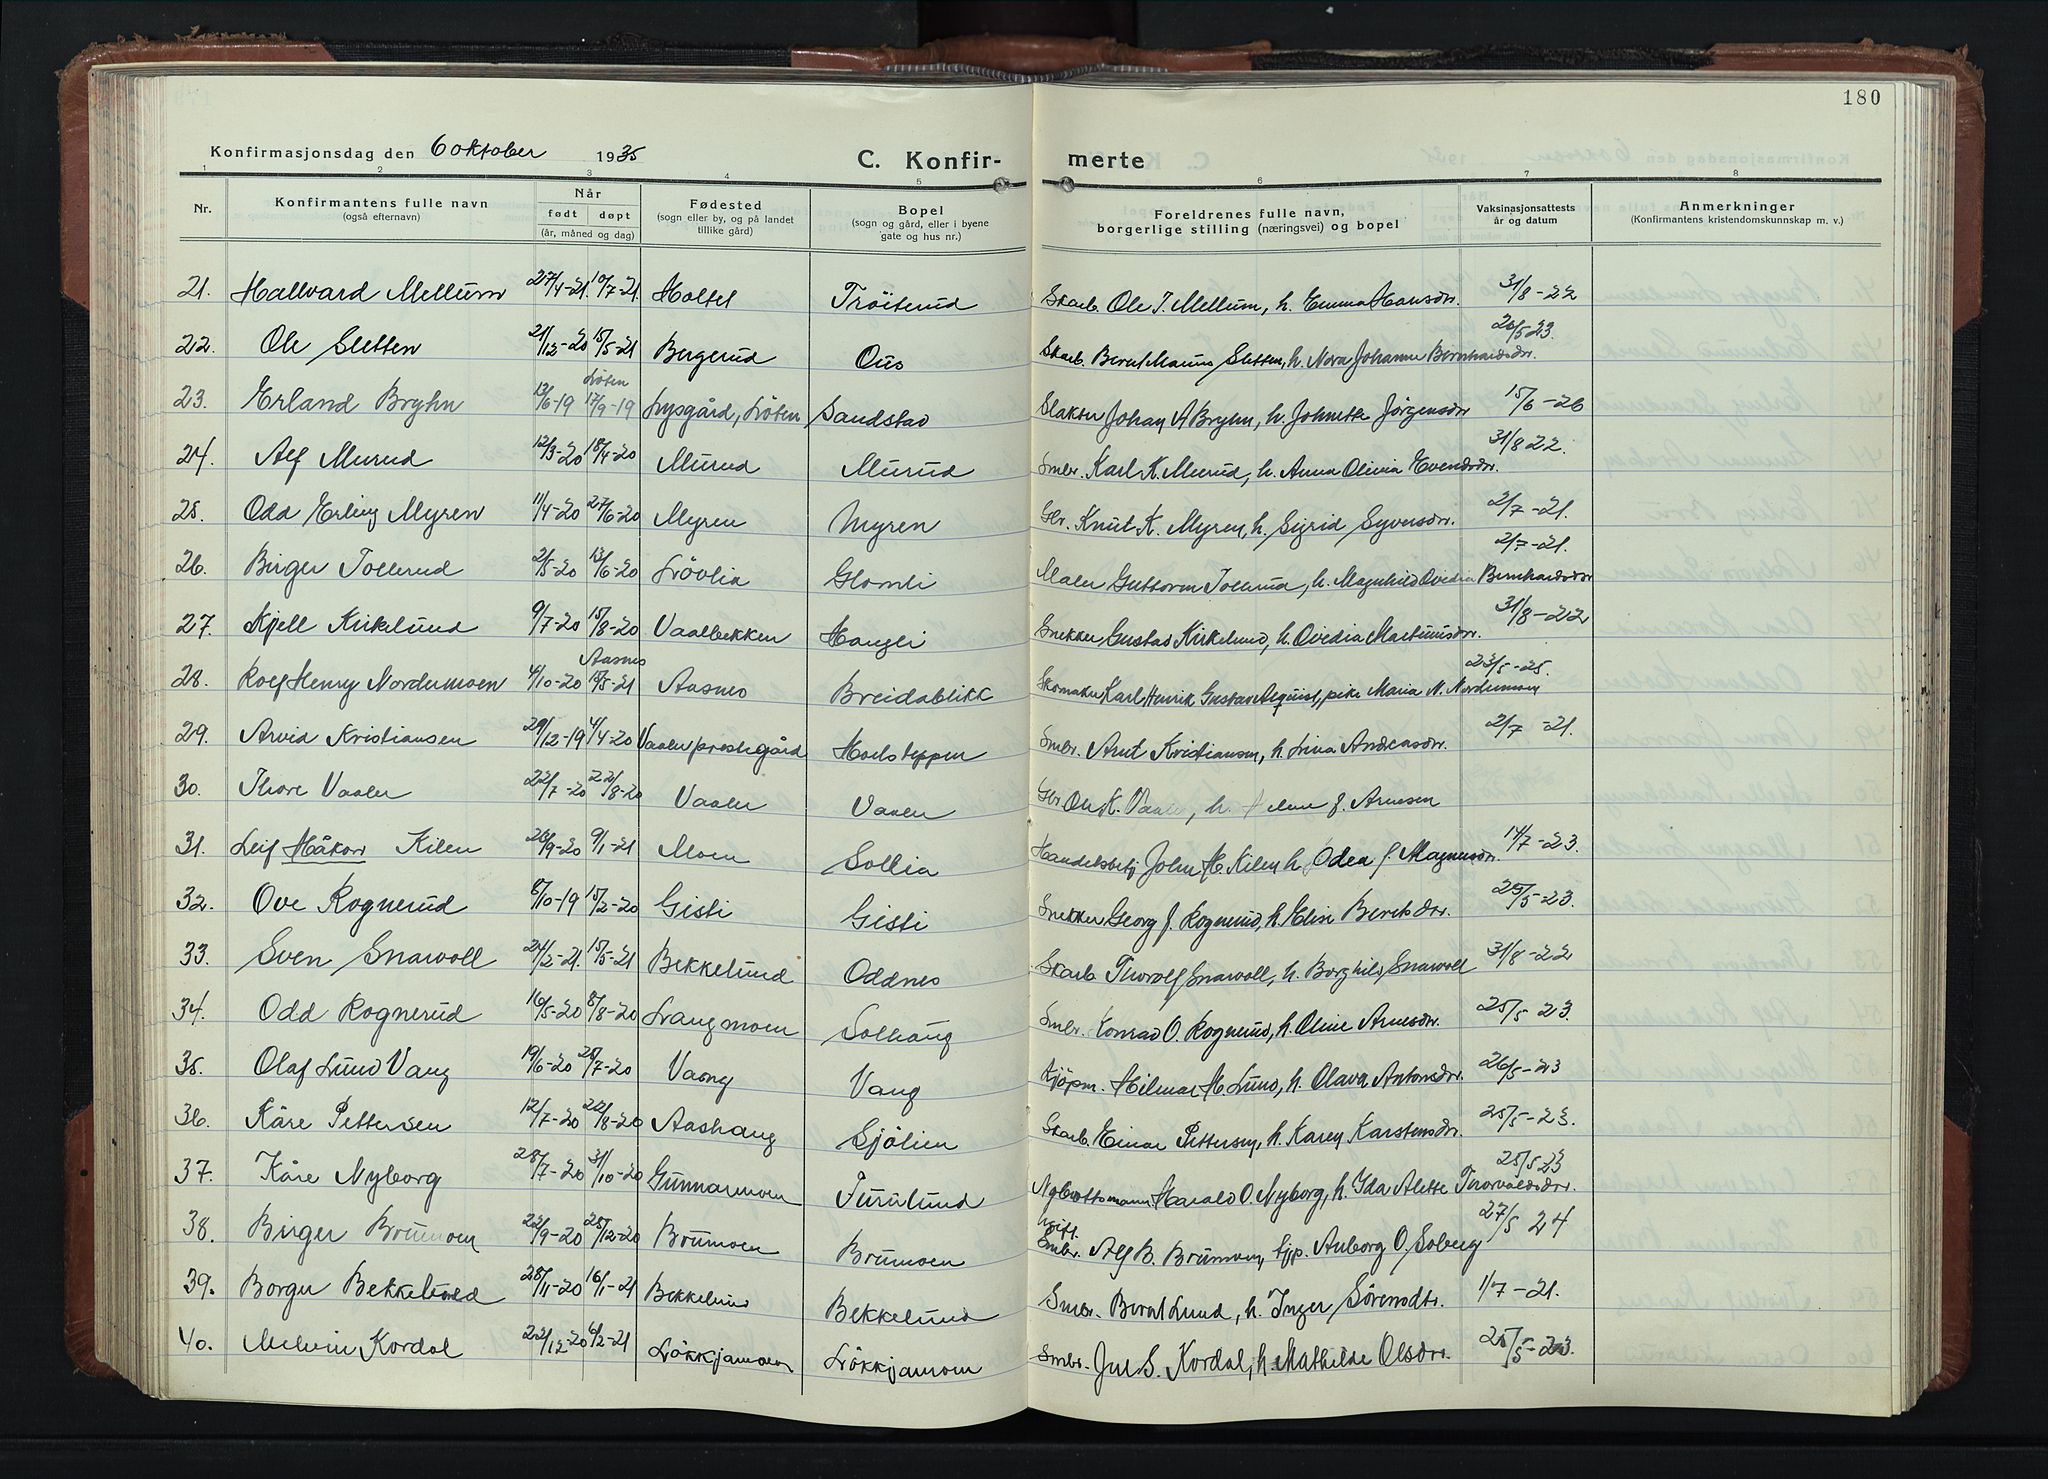 180
Konfirmasjonsdag den 6 oktober 1935 C. Konfir- merte
1 2 3 4 5 6 7 8
Nr. Konfirmantens fulle navn (også efternavn) Når født døpt (år, måned og dag) Fødested (sogn eller by, og på landet tillike gård) Bopel (sogn og gård, eller i byene gate og hus nr.) Foreldrenes fulle navn, borgerlige stilling (næringsvei) og bopel Vaksinasjonsattests år og datum Anmerkninger (Konfirmantens kristendomskunnskap m. v.)
21. Hallvard Mellum 27/4-21 10/7-21 Holtet Tröiterud Skarb. Ole J. Mellum, h. Emma Hansdtr. 31/8-22
22. Ole Sletten 21/12-20 15/5-21 Bergerud Ous Skarb. Bernt Sletten, h. Nora Johanne Bernhardsdtr. 26/5 23.
23. Erland Bryhn 13/6-19 Löten 17/9-19 Lysgård, Löten Sandstad Slakter Johan A Bryhn, h. Johnette Jörgensdtr 15/6-26
24. Alf Murud 12/3-20 18/4-20 Murud Murud Smbr. Karl K. Murud, h. Anna Olivia Evendsdtr. 31/8 22.
25. Odd Erling Myren 11/4-20 27/6-20 Myren Myren Gbr. Knut K. Myren, h. Sigrid Syversdtr. 2/7-21.
26. Birger Tollerud 2/5-20 13/6-20 Lövlia Glomli Maler Guttorm Tollerud, h. Magnhild Ovedia Bernhardsdtr 2/7-21.
27. Kjell Kirkelund 9/7-20 15/8-20 Vaalbekken Haugli Snekker Gustav Kirkelund, h. Ovidia Martinusdtr. 31/8-22
28. Rolf Henry Nordermoen 4/10-20 Aasnes 15/5-21 Aasnes Breidablikk Skomaker Karl Henrik Gustav Alquist, pike Maria N. Nordermoen 23/5-25.
29. Arvid Kristiansen 29/12-19 4/4-20 Vaaler prestegård Moesteppen Smbr. Arnt Kristiansen, h. Lina Andreasdtr. 2/7-21.
30. Thore Vaaler 22/7-20 22/8-20 Vaaler Vaaler Gbr Ole K. Vaaler, h. Helene J. Arnesen
31. Leif Håkon Kilen 26/9-20 9/1-21 Moen Sollia Handelsbetj John M. Kilen h. Odea J. Magnusdtr. 14/7-23.
32. Ove Rognerud 8/10-19 15/2-20 Gisti Gisti Snekker Georg J. Rognerud, h. Elise Berntsdtr. 25/5-23.
33. Sven Snarvoll 24/2-21. 15/5-21 Bekkelund Oddnes Skarb. Thorolf Snarvoll, h. Borghild Snarvoll 31/8-22
34. Odd Rognerud 16/5-20 8/8-20 Langmoen Solhaug Smbr. Konrad O. Rognerud, h. Oline Arnesdtr. 25/5 23.
35. Olaf Lund Vang 19/6-20 25/7-20 Vaang Vang Kjöpm. Hilmar M. Lund, h. Olava Antonsdtr. 26/5-23
36. Kåre Pettersen 12/7-20 22/8-20 Aashaug Sjölien Skarb. Einar Pettersen, h. Karen Karstensdtr. 25/5-23.
37. Kåre Nyborg 28/7-20 31/10-20 Gunnarmoen Furulund Nybrottsmann Harald O. Nyborg, h. Ida Alette Thorvaldsdtr. 25/5 23
38. Birger Brumoen 22/9-20 25/12-20 Brumoen Brumoen Smbr. Alf B. Brumoen, fjp. Anborg O. Soberg 27/5 24
39. Borger Bekkelund 28/11-20 16/1-21 Bekkelund Bekkelund Smbr. Bernt Lund, h. Inger Sörensdtr. 1/7-21.
40. Melvin Kordal 22/12-20 6/2-21 Lökkjamoen Lökkjamoen Smbr. S. Kordal, h. Mathilde Olsdtr. 25/5-23.